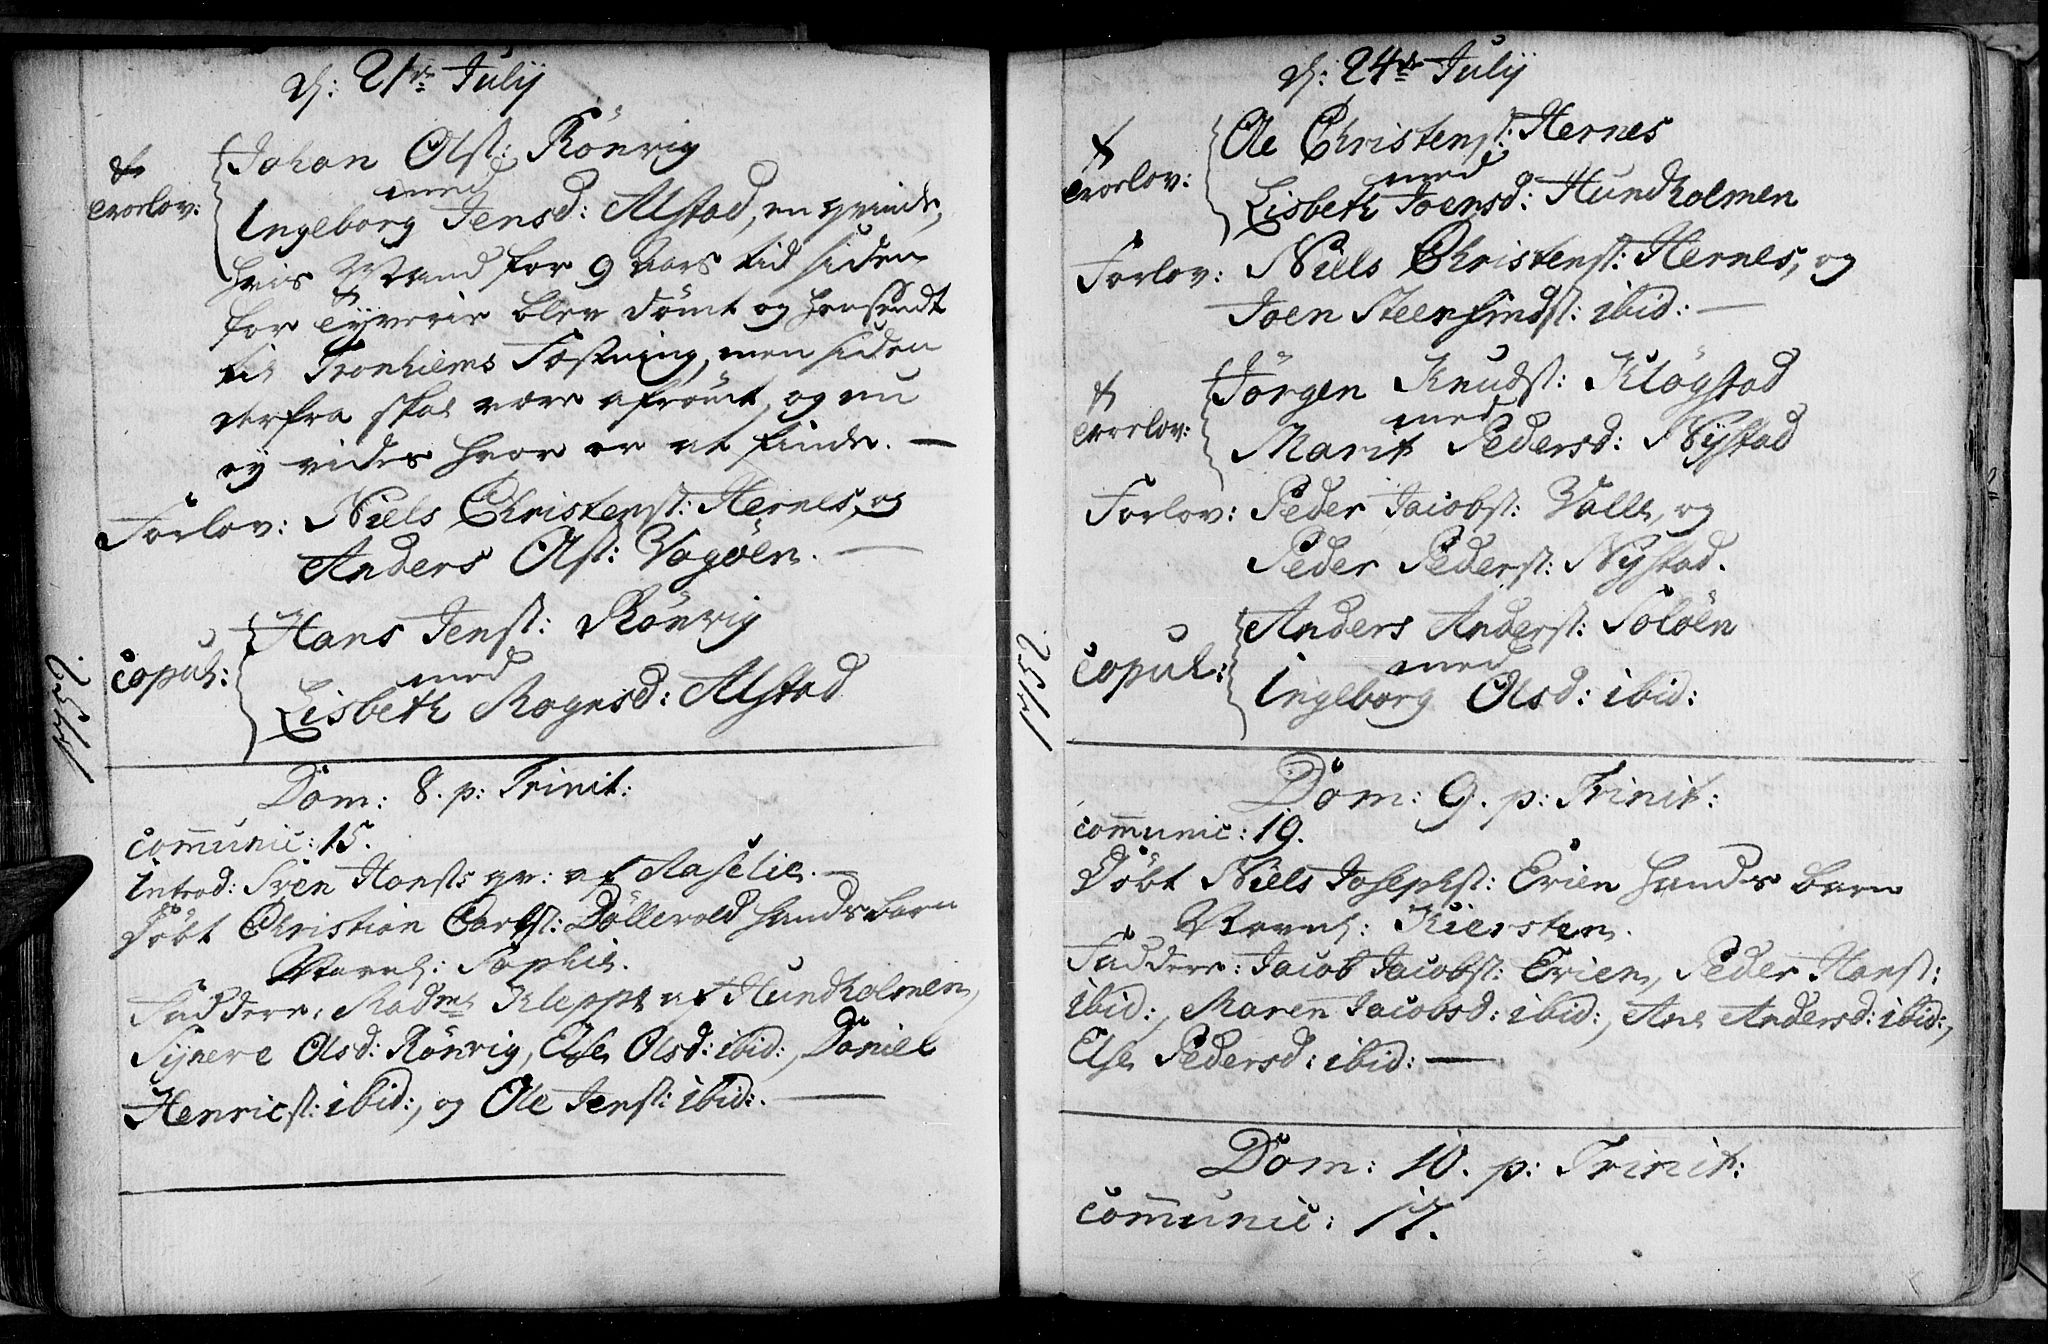 d: 21de Julij
Johan Olss: Rönvig
med
Trorlov:
Ingeborg Jensd: Alstad, en qvinde,
hvis Mand for 9 aars tid siden
for Tyverie blev dömt og hensendt
til Tronhiems Fæstning, men siden
derfra skal være afrömt, og nu
ey vides hvor er at finde. —
Forlov: Niels Christenss: Hernes, og
Anders Olss: Vogöen. —
Hans Jenss: Rönvig
Copul: med
Lisbeth Mognsd: Alstad
1752.
Dom: 8. p: Trinit:
Communic: 15.
Introd: Sven Hanss qv: af
Döbt Christian Carlss: Döllevold hands barn
Navnl: Sophie.
Faddere: Madme Kleppe af Hundholmen,
Synere Olsd: Rönvig, Else Olsd: ibid:, Daniel
Henricss: ibid:, og Ole Jenss: ibid:. —
d: 24de Julij
Ole Christenss: Hernes
Trorlov: med
Lisbeth Joensd: Hundholmen
Forlov: Niels Christenss: Hernes, og
Joen Steenfindss: ibid: —
Jörgen Knudss: Klögstad
Trorlov: med
Marit Pedersd: Nystad
Forlov: Peder Jacobss: Valle, og
Peder Pederss: Nystad.
Anders Anderss: Solöen
Copul: med
Ingeborg Olsd: ibid:
1752.
Dom: 9. p: Trinit:
Communic: 19.
Döbt Niels Josephss: Evien hands barn
Navnl: Kiersten.
Faddere: Jacob Jacobss: Evien, Peder Hanss:
ibid:, Maren Jacobsd: ibid:, Ane Andersd: ibid:,
Else Pedersd: ibid: —
Dom: 10. p: Trinit:
Communic: 17.